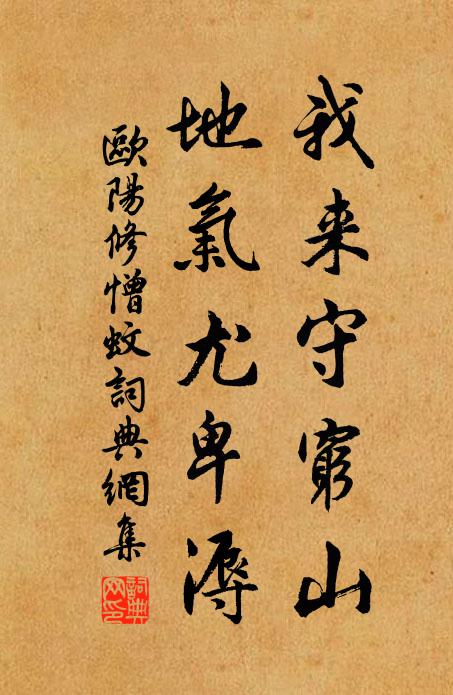 我来守窮山
地氣尤卑溽
歐陽修憎蚊詞典網集
詞典網印